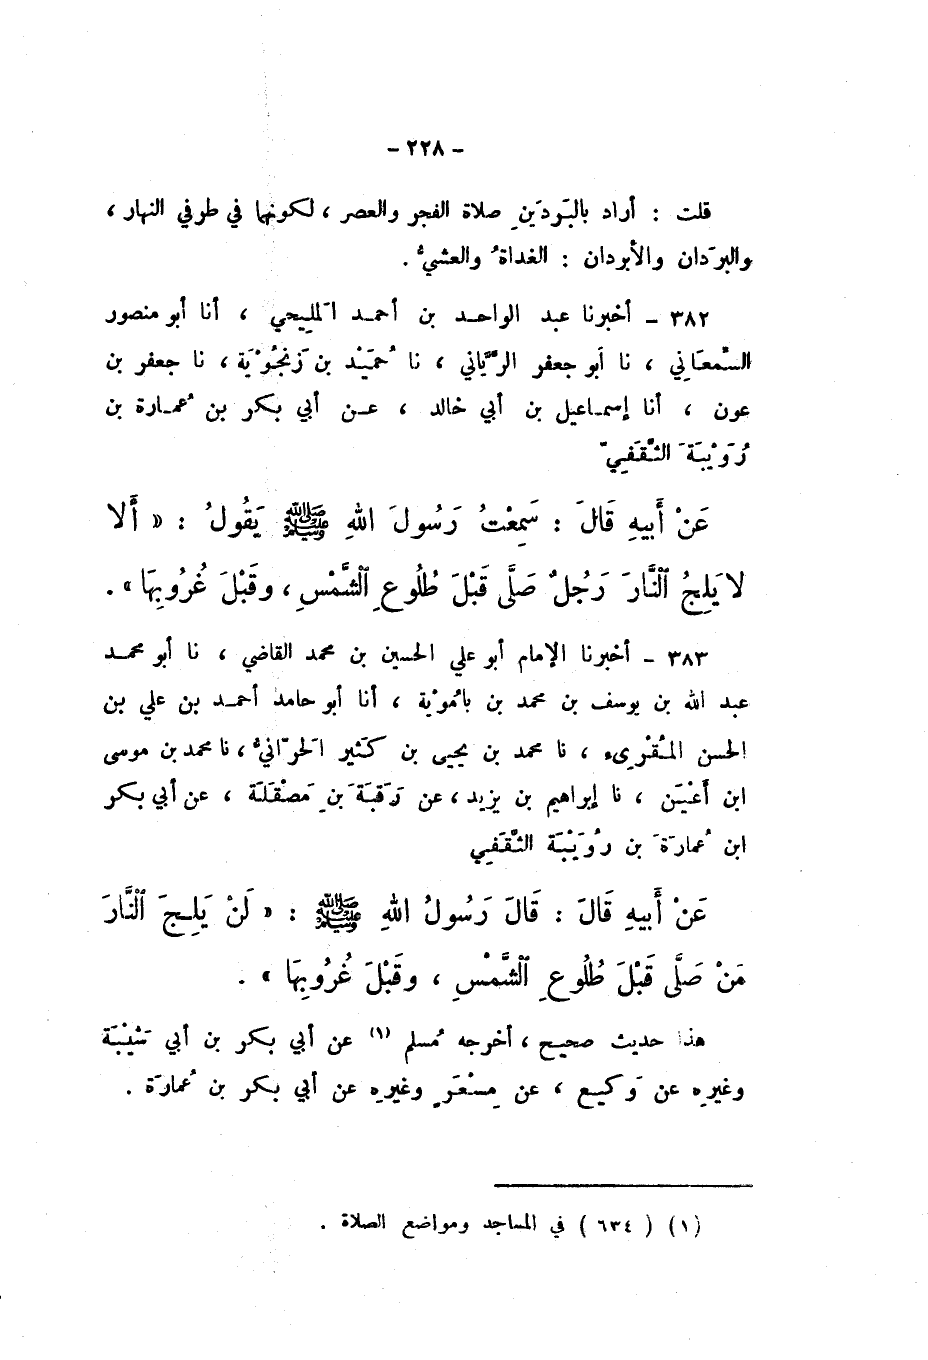 - ٢٢٨ -
قلت : أراد بالبَردَينِ صلاة الفجر والعصر ، لكونها في طرفي النهار ،
والبرَدان والأبردان : الغداةُ والعشيُّ .
٣٨٢ – أخبرنا عبد الواحد بن أحمد المَليحي ، أنا أبو منصور
السَّمعَاني ، نا أبو جعفر الرَّيَّاني ، نا حُمَيْد بن زَنجُوْيَة ، نا جعفر بن
عون ، أنا إسماعيل بن أبي خالد ، عن أبي بكر بن عُمارة بن
رُوَيْبَةَ الثَّقَفِيّ
عَنْ أَبيهِ قَالَ : سَمِعْتُ رَسُولَ اللهِ ﷺ يَقُولُ : « أَلا
لا يَلِجُ ٱلنَّارَ رَجُلٌ صَلَّى قَبْلَ طُلُوعِ ٱلشَّمْسِ ، وقَبْلَ غُرُوبِهَا » .
٣٨٣ – أخبرنا الإمام أبو علي الحسين بن محمد القاضي ، نا أبو محمد
عبد الله بن يوسف بن محمد بن بامُويَة ، أنا أبو حامد أحمد بن علي بن
الحسن المُقْرىء ، نا محمد بن يحيى بن كَثير الحَرّانيُّ ، نا محمد بن موسى
ابن أَعْيَن ، نا إبراهيم بن يزيد ، عن رَقَبَةَ بنِ مَصْقَلَة ، عن أبي بكر
ابن عُمارَةَ بن رُوَيْبَة الثَّقَفِي
عَنْ أَبيهِ قَالَ : قَالَ رَسُولُ اللهِ ﷺ : « لَنْ يَلِجَ ٱلنَّارَ
مَنْ صَلَّى قَبْلَ طُلُوعِ ٱلشَّمْسِ ، وقَبْلَ غُرُوبِهَا » .
هذا حديث صحيح ، أخرجه مُسلم (١) عن أبي بكر بن أبي شَيْبَة
وغيرِه عن وَكيع ، عن مِسْعَرٍ وغيرِه عن أبي بكر بن عُمارَة .
(١) ( ٦٣٤ ) في المساجد ومواضع الصلاة .